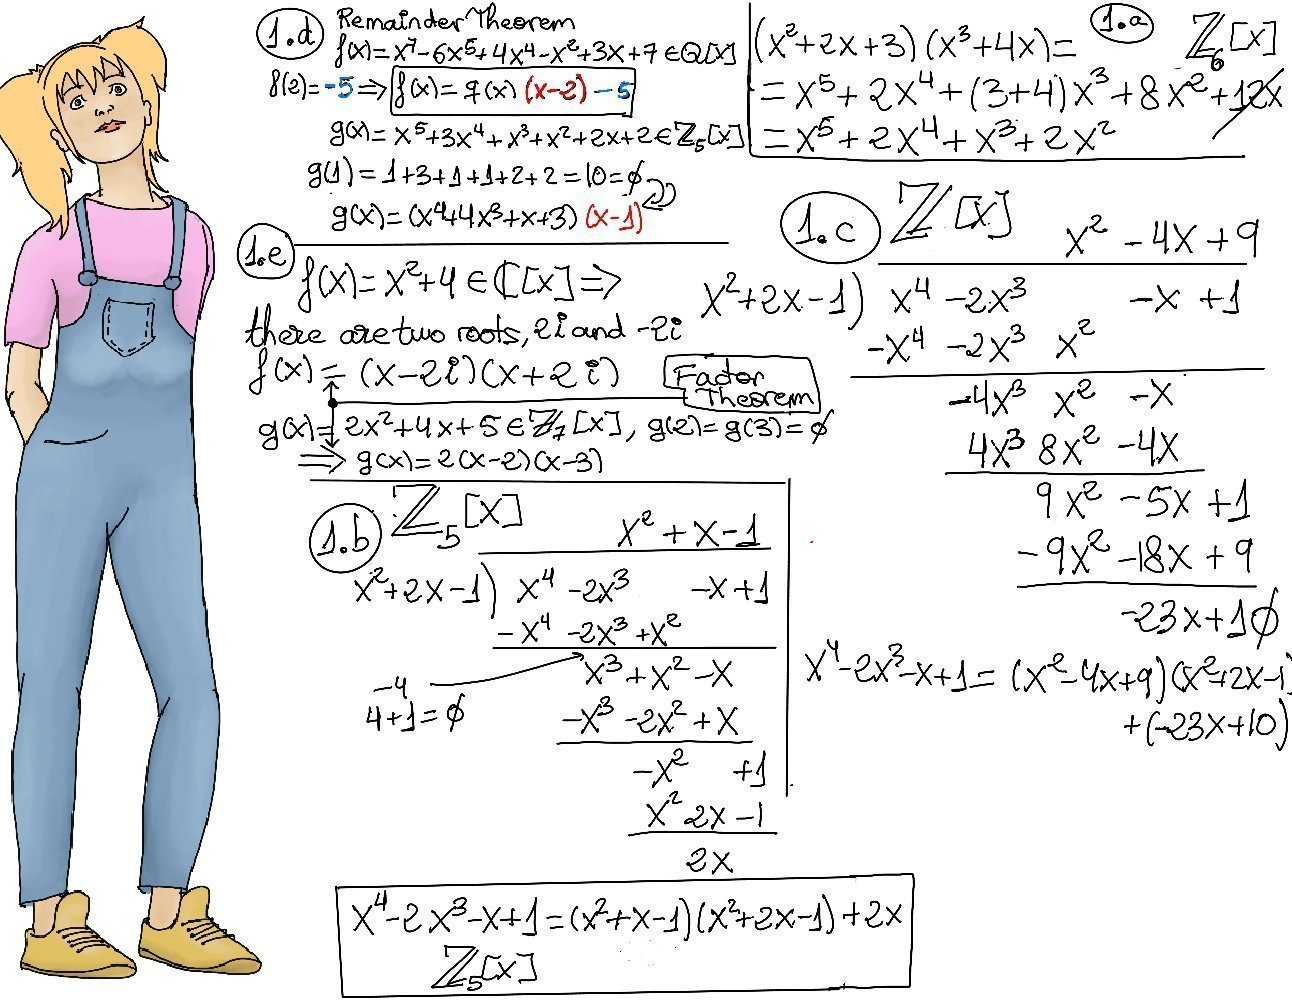 1.d
Remainder Theorem
f(x)=x⁷-6x⁵+4x⁴-x²+3x+7 ∈ Q[x]
f(2)=-5 ⇒ f(x)=q(x)(x-2)-5
g(x)=x⁵+3x⁴+x³+x²+2x+2 ∈ ℤ₅[x]
g(1)=1+3+1+1+2+2=10=0
g(x)=(x⁴+4x³+x+3)(x-1)
1.a ℤ₆[x]
(x²+2x+3)(x³+4x)=
=x⁵+2x⁴+(3+4)x³+8x²+12x
=x⁵+2x⁴+x³+2x²
1.e
f(x)=x²+4 ∈ ℂ[x] ⇒
there are two roots, 2i and -2i
f(x)=(x-2i)(x+2i)
Factor
Theorem
g(x)=2x²+4x+5 ∈ ℤ₇[x], g(2)=g(3)=0
⇒ g(x)=2(x-2)(x-3)
1.c ℤ[x]
x² -4x +9
x²+2x-1) x⁴ -2x³ -x +1
-x⁴ -2x³ x²
-4x³ x² -x
4x³ 8x² -4x
9x² -5x +1
-9x² -18x +9
-23x+10
x⁴-2x³-x+1=(x²-4x+9)(x²+2x-1)
+(-23x+10)
1.b ℤ₅[x]
x²+x-1
x²+2x-1) x⁴ -2x³ -x+1
-x⁴ -2x³ +x²
x³+x²-x
-4
4+1=0
-x³ -2x² +x
-x² +1
x² 2x -1
2x
x⁴-2x³-x+1=(x²+x-1)(x²+2x-1)+2x
ℤ₅[x]